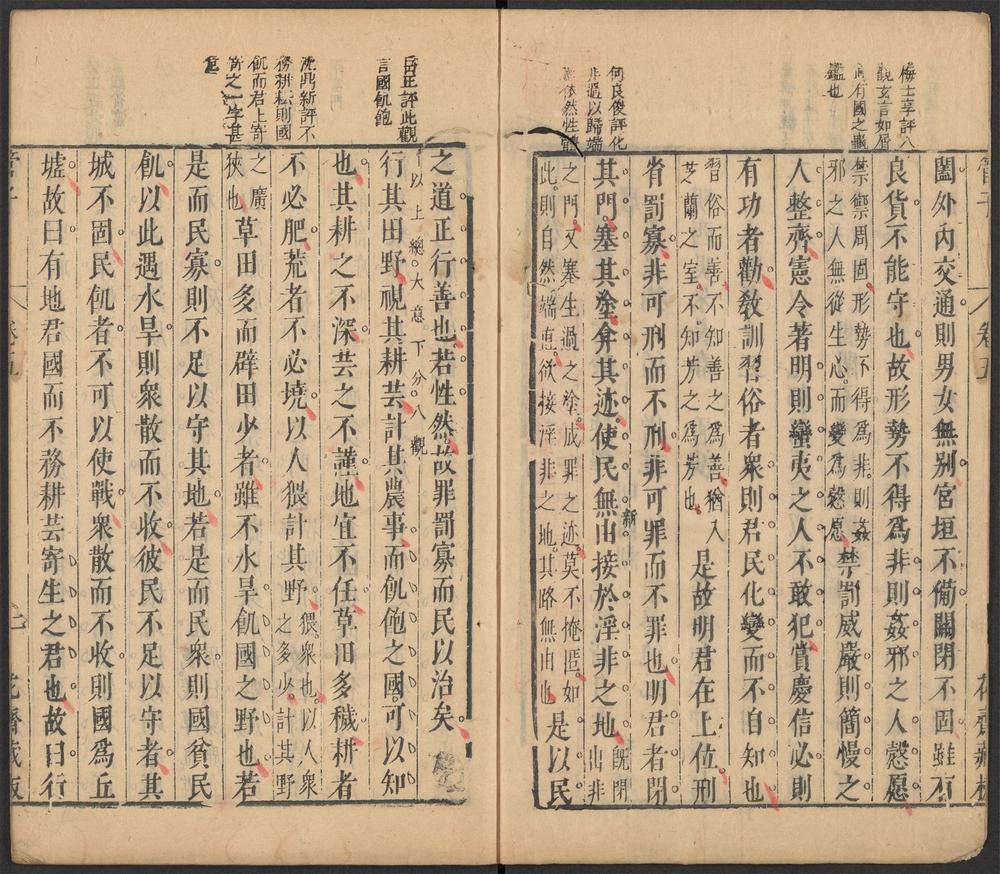 梅士享評八
觀玄言如眉
有國之龜
鑑也
何良俊評化
非過以歸端
依然性體
管子 卷五 花齋藏板
闔外內交通則男女無別宮垣不備關閉不固雖有
良貨不能守也故形勢不得爲非則姦邪之人慤愿
禁禦周固形勢不得爲非則姦
邪之人無從生心而變爲慤愿
禁罰威嚴則簡慢之
人整齊憲令著明則蠻夷之人不敢犯賞慶信必則
有功者勸敎訓習俗者衆則君民化變而不自知也
習俗而善不知善之爲善猶入
芝蘭之室不知芳之爲芳也
是故明君在上位刑
省罰寡非可刑而不刑非可罪而不罪也明君者閉
其門塞其塗弇其迹使民無由接於淫非之地
旣閉
出非
之門又塞生過之塗成罪之迹莫不掩匿如
此則自然端慤欲接淫非之地其路無由也
是以民
岳正評此觀
言國飢飽
沈鼎新評不
務耕耘則國
飢而君上寄
寄之一字甚
危
之道正行善也若性然故罪罰寡而民以治矣
以上總大意下分八觀
行其田野視其耕芸計其農事而飢飽之國可以知
也其耕之不深芸之不謹地宜不任草田多穢耕者
不必肥荒者不必墝以人猥計其野
猥衆也以人衆
之多少計其野
之廣
狹也
草田多而辟田少者雖不水旱飢國之野也若
是而民寡則不足以守其地若是而民衆則國貧民
飢以此遇水旱則衆散而不收彼民不足以守者其
城不固民飢者不可以使戰衆散而不收則國爲丘
墟故曰有地君國而不務耕芸寄生之君也故曰行
管子 卷五 二 花齋藏板